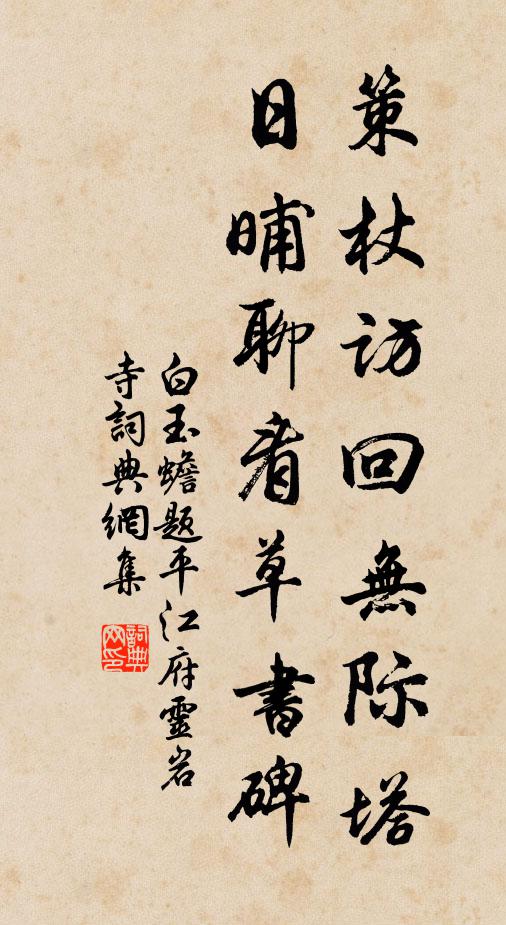 策杖訪回無際塔
日晡聊看草書碑
白玉蟾题平江府靈岩
寺詞典網集
詞典
网印